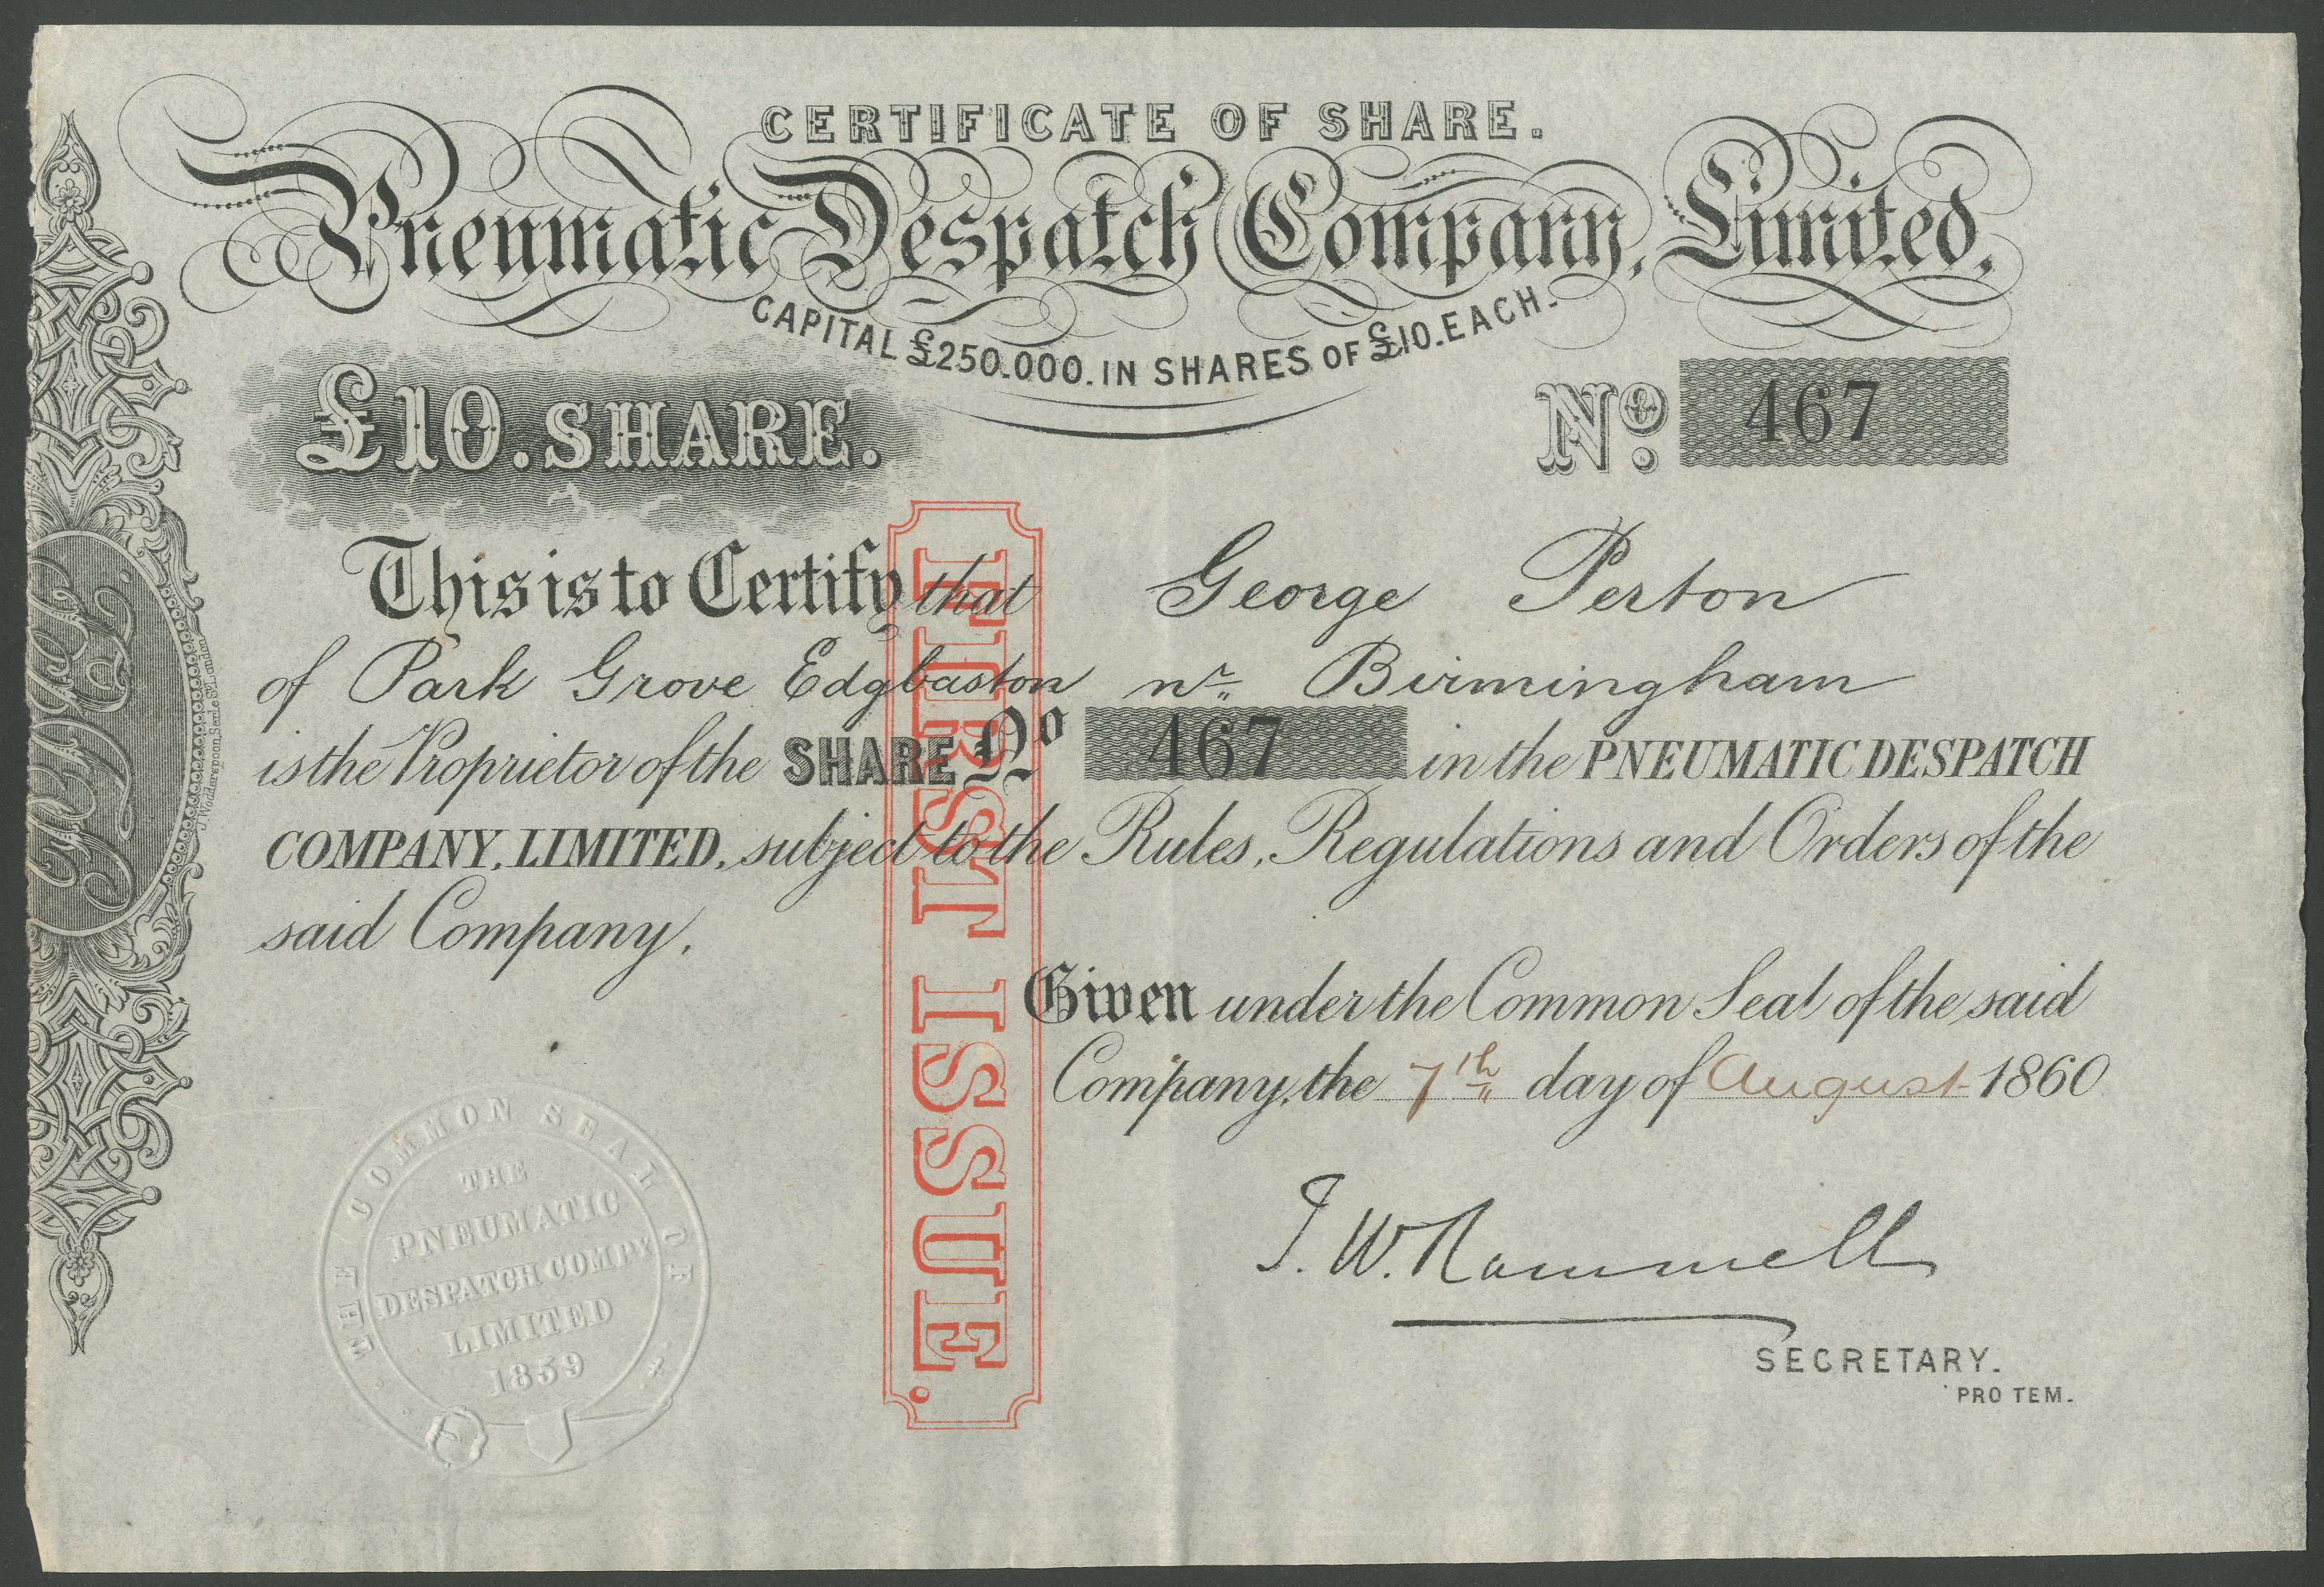 CERTIFICATE OF SHARE.
Pneumatic Despatch Company, Limited.
CAPITAL £250.000. IN SHARES OF £10. EACH.
£10. SHARE.
No. 467
This is to Certify that George Perton
of Park Grove Edgbaston nr. Birmingham
is the Proprietor of the SHARE No 467 in the PNEUMATIC DESPATCH
COMPANY, LIMITED, subject to the Rules, Regulations and Orders of the
said Company.
Given under the Common Seal of the said
Company, the 7th day of August 1860
T. W. Rammell
SECRETARY.
PRO TEM.
FIRST ISSUE.
THE COMMON SEAL OF
THE
PNEUMATIC
DESPATCH COMPY
LIMITED
1859
J. Wodderspoon, Serle St. London.